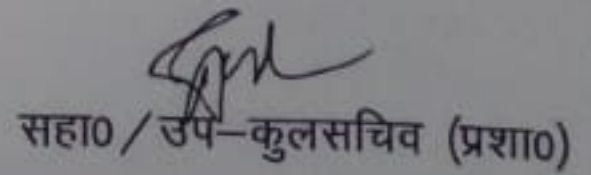 सहा0 / उप–कुलसचिव (प्रशा0)